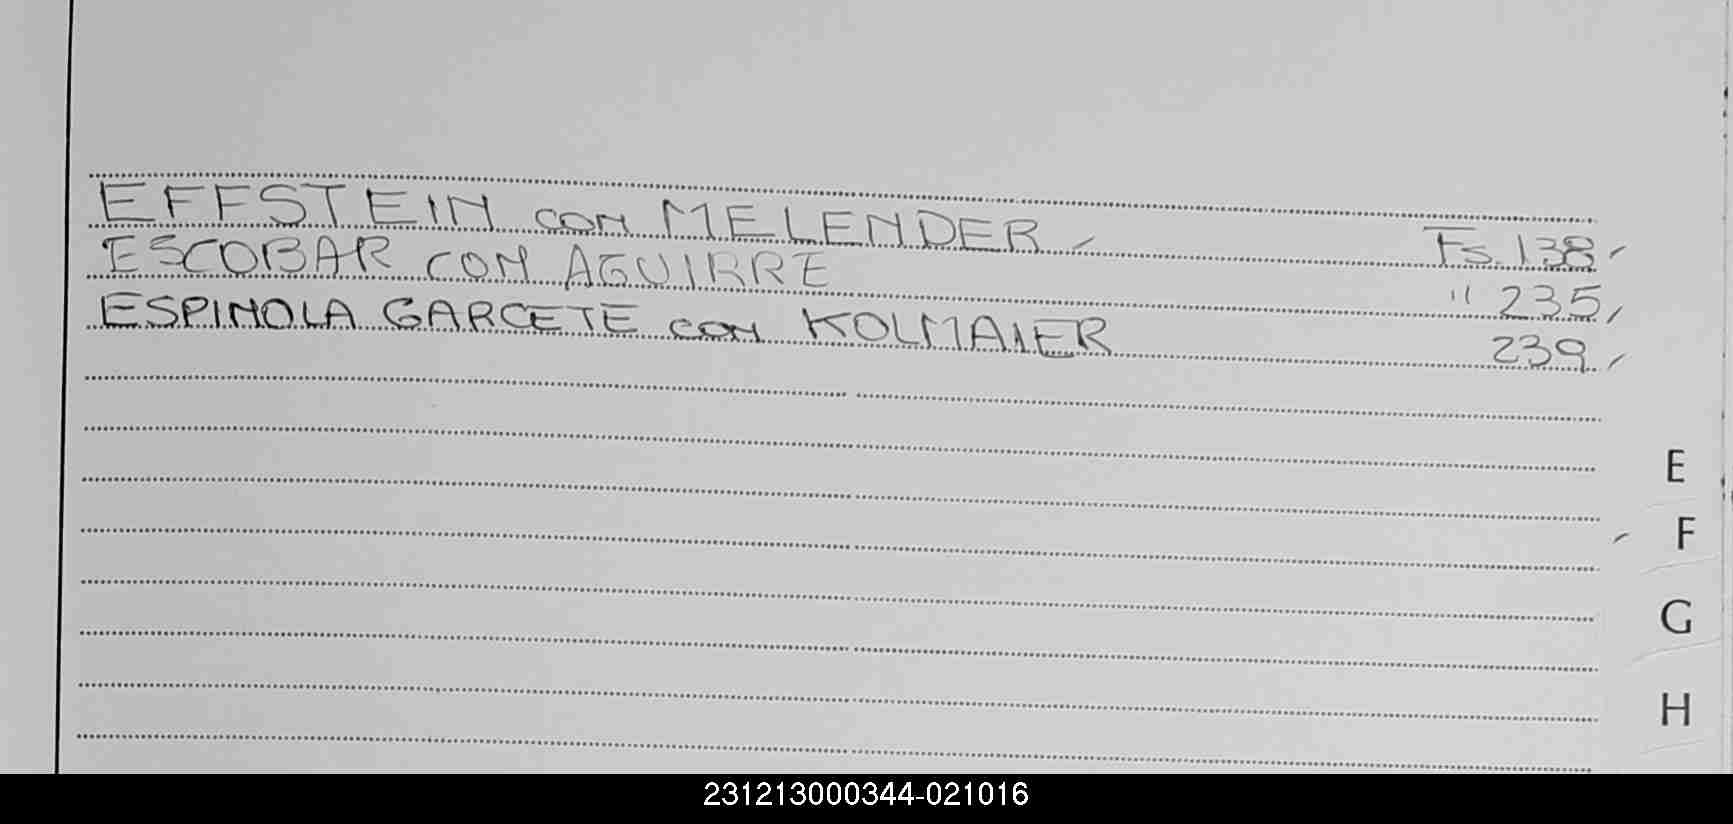 EFFSTEIN con MELENDER Fs. 138
ESCOBAR CON AGUIRRE " 235
ESPINOLA GARCETE con KOLMAIER 239
E
F
G
H
231213000344-021016